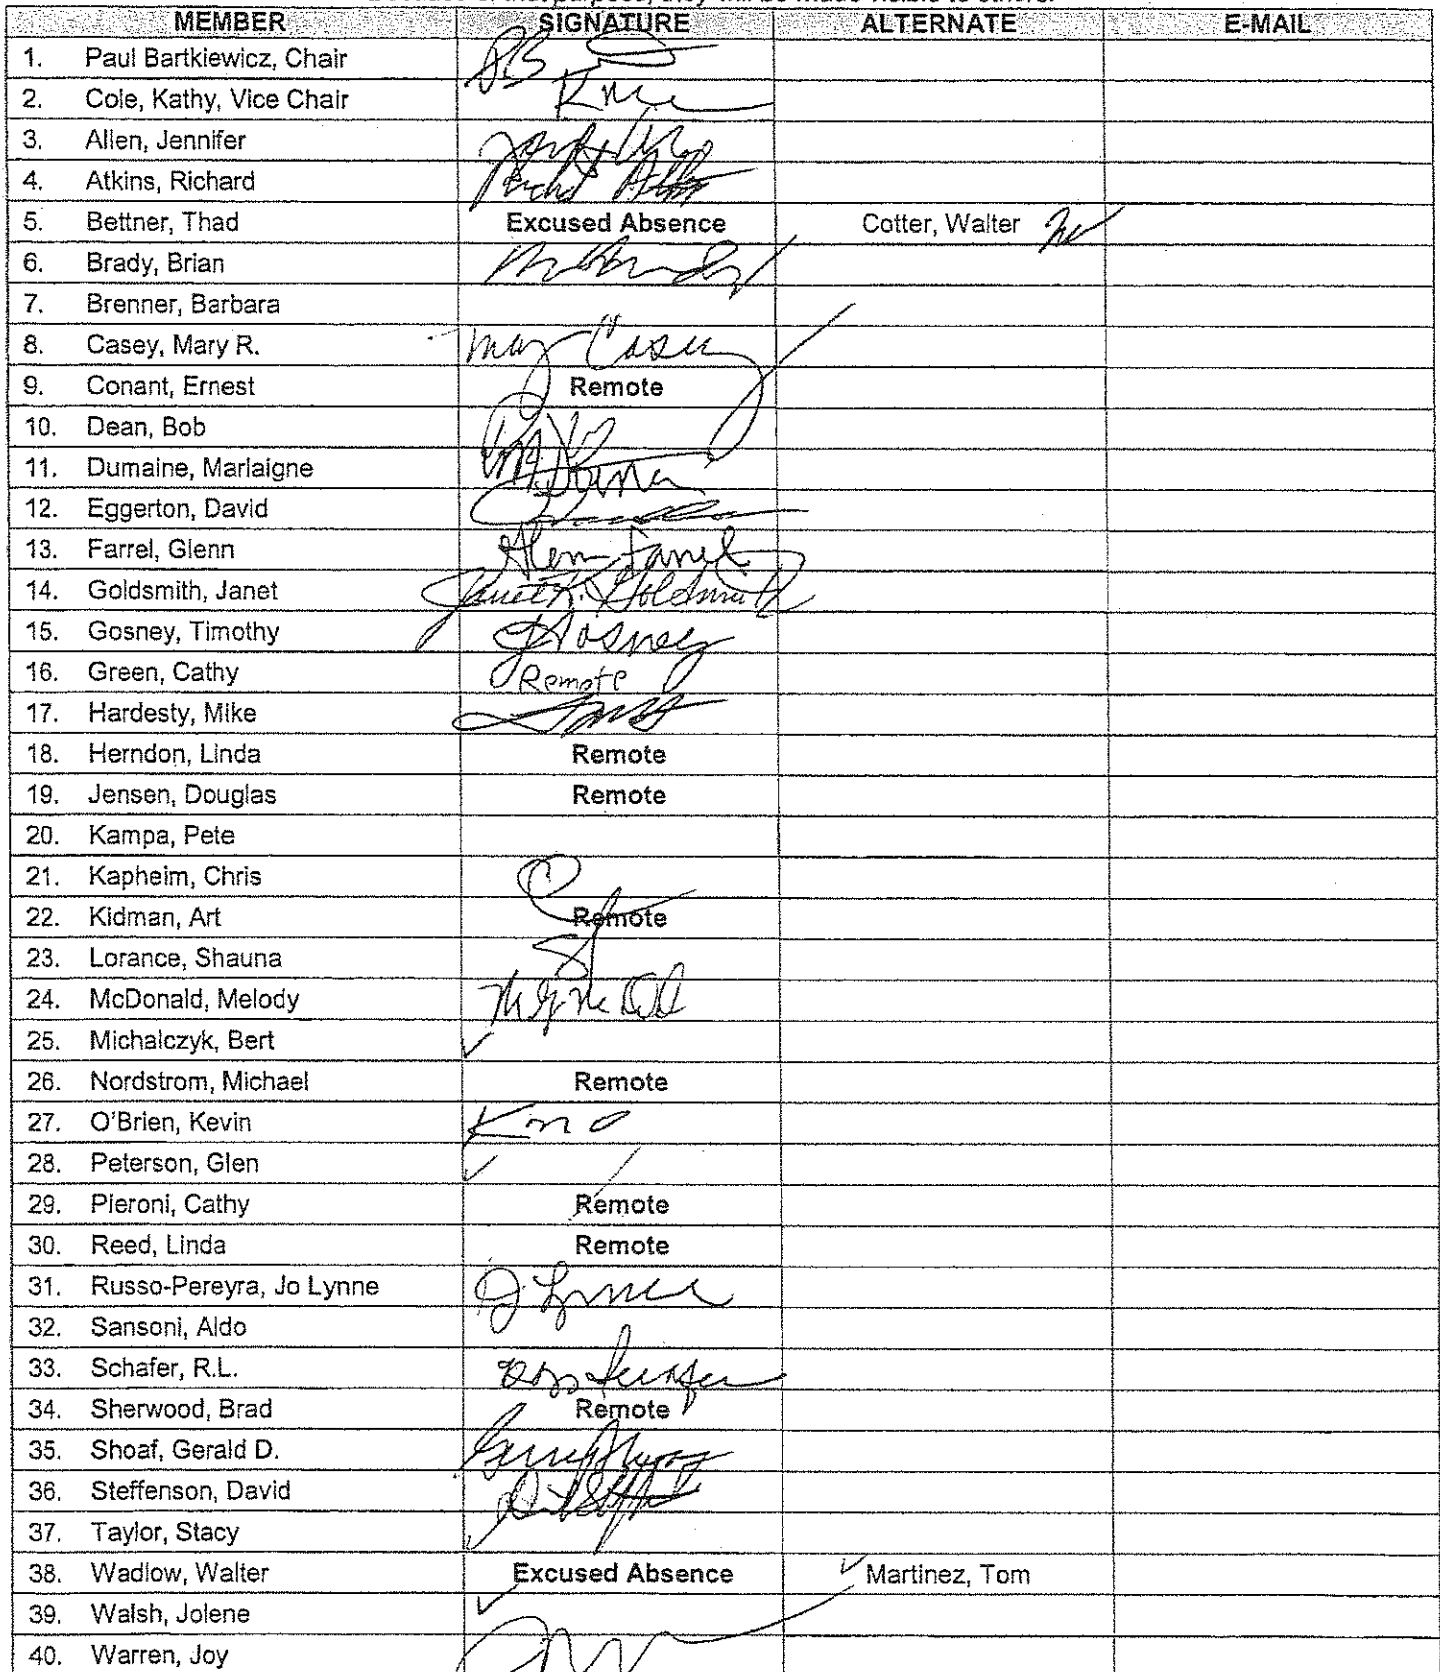 MEMBER SIGNATURE ALTERNATE E-MAIL
1. Paul Bartkiewicz, Chair
2. Cole, Kathy, Vice Chair
3. Allen, Jennifer
4. Atkins, Richard
5. Bettner, Thad Excused Absence Cotter, Walter
6. Brady, Brian
7. Brenner, Barbara
8. Casey, Mary R. Mary Casey
9. Conant, Ernest Remote
10. Dean, Bob
11. Dumaine, Marlaigne
12. Eggerton, David
13. Farrel, Glenn Glenn Farrel
14. Goldsmith, Janet Janet K. Goldsmith
15. Gosney, Timothy Gosney
16. Green, Cathy Remote
17. Hardesty, Mike
18. Herndon, Linda Remote
19. Jensen, Douglas Remote
20. Kampa, Pete
21. Kapheim, Chris
22. Kidman, Art Remote
23. Lorance, Shauna
24. McDonald, Melody
25. Michalczyk, Bert
26. Nordstrom, Michael Remote
27. O'Brien, Kevin
28. Peterson, Glen
29. Pieroni, Cathy Remote
30. Reed, Linda Remote
31. Russo-Pereyra, Jo Lynne
32. Sansoni, Aldo
33. Schafer, R.L.
34. Sherwood, Brad Remote
35. Shoaf, Gerald D.
36. Steffenson, David
37. Taylor, Stacy
38. Wadlow, Walter Excused Absence Martinez, Tom
39. Walsh, Jolene
40. Warren, Joy